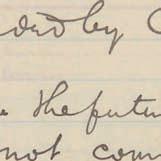 by C
the futur
not com